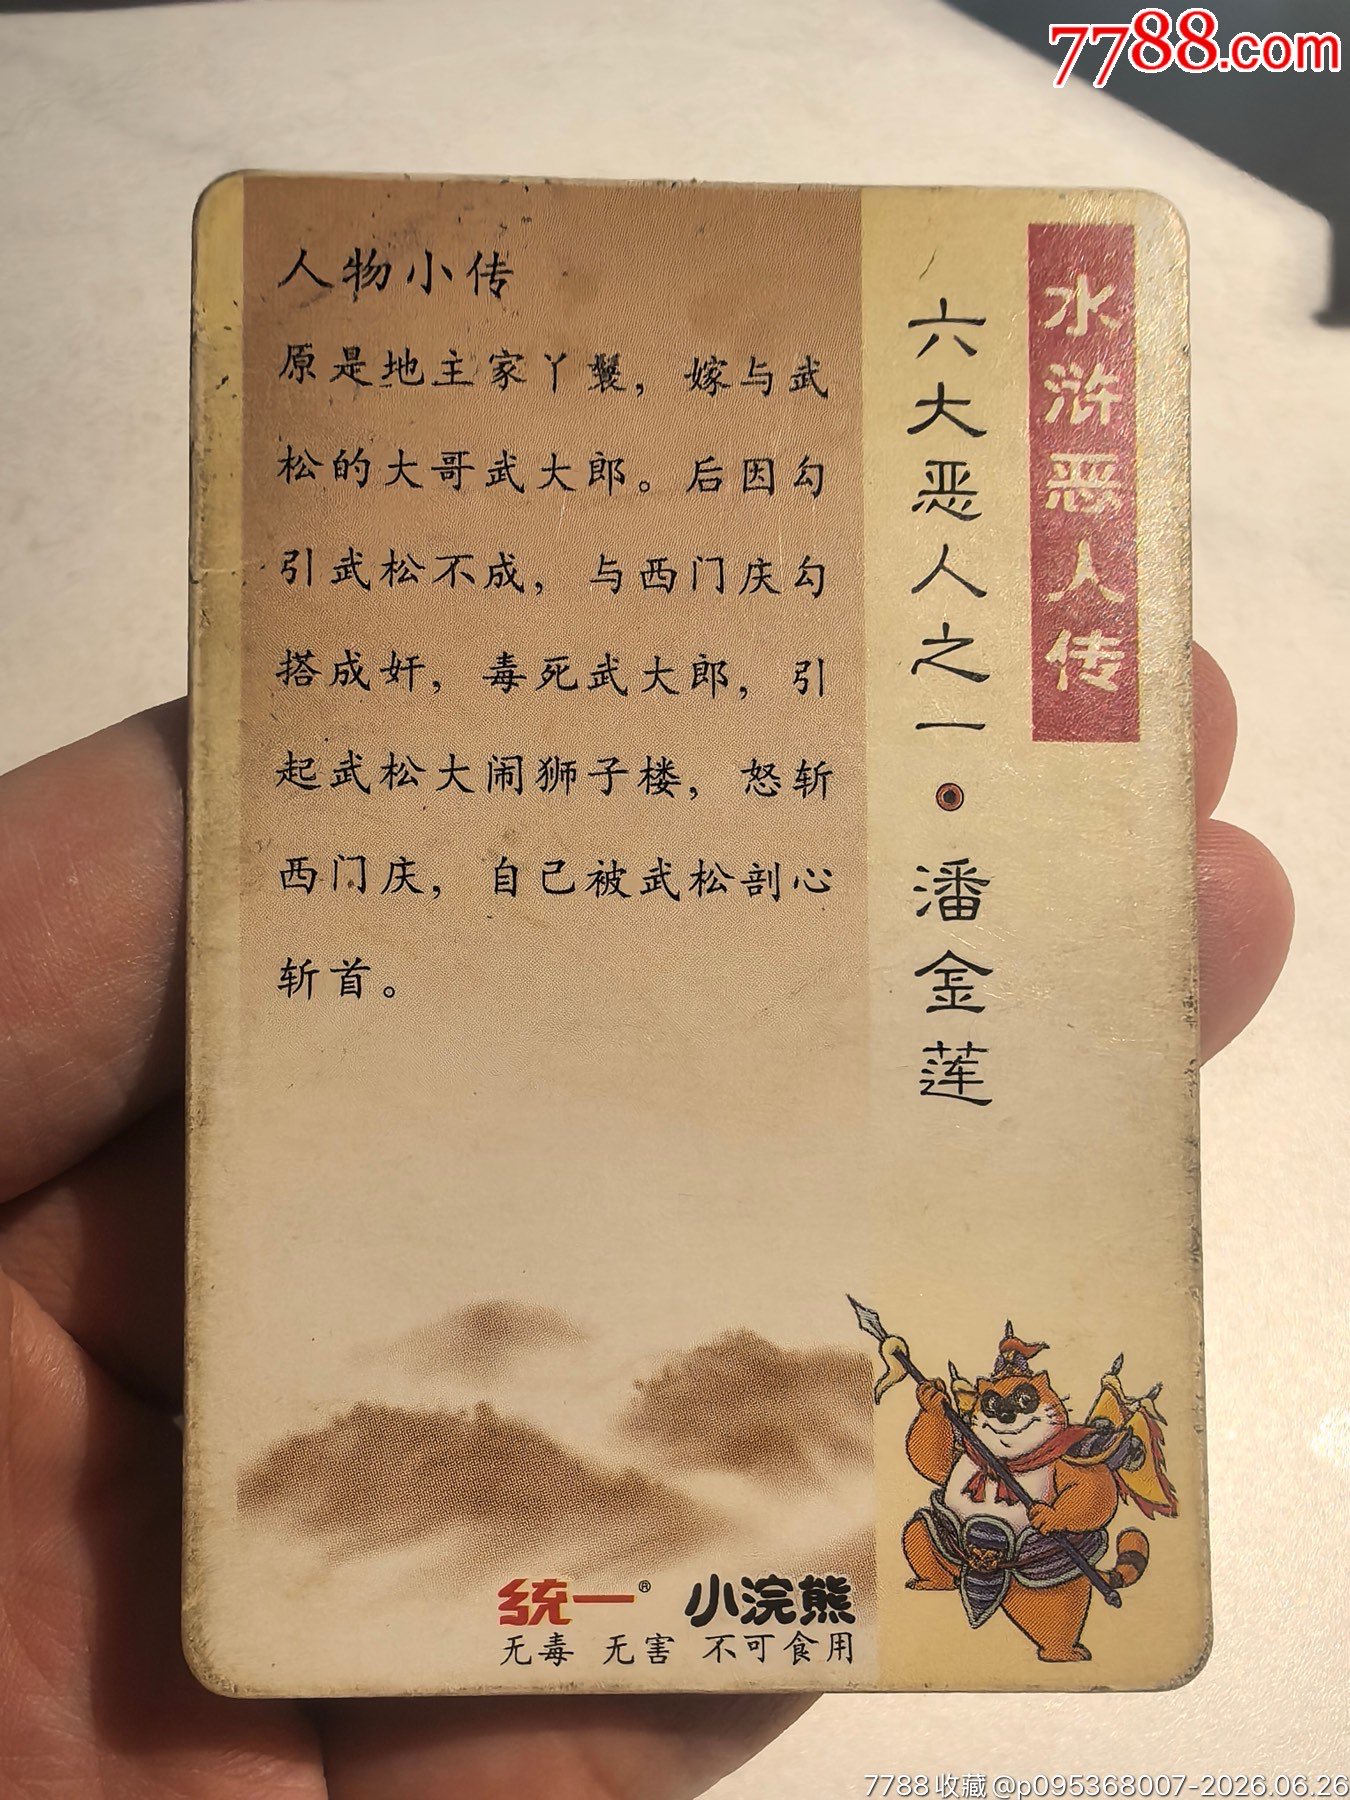 7788.com
水浒恶人传
六大恶人之一·潘金莲
人物小传
原是地主家丫鬟，嫁与武
松的大哥武大郎。后因勾
引武松不成，与西门庆勾
搭成奸，毒死武大郎，引
起武松大闹狮子楼，怒斩
西门庆，自己被武松剖心
斩首。
统一® 小浣熊
无毒 无害 不可食用
7788收藏@p095368007-2026.06.26